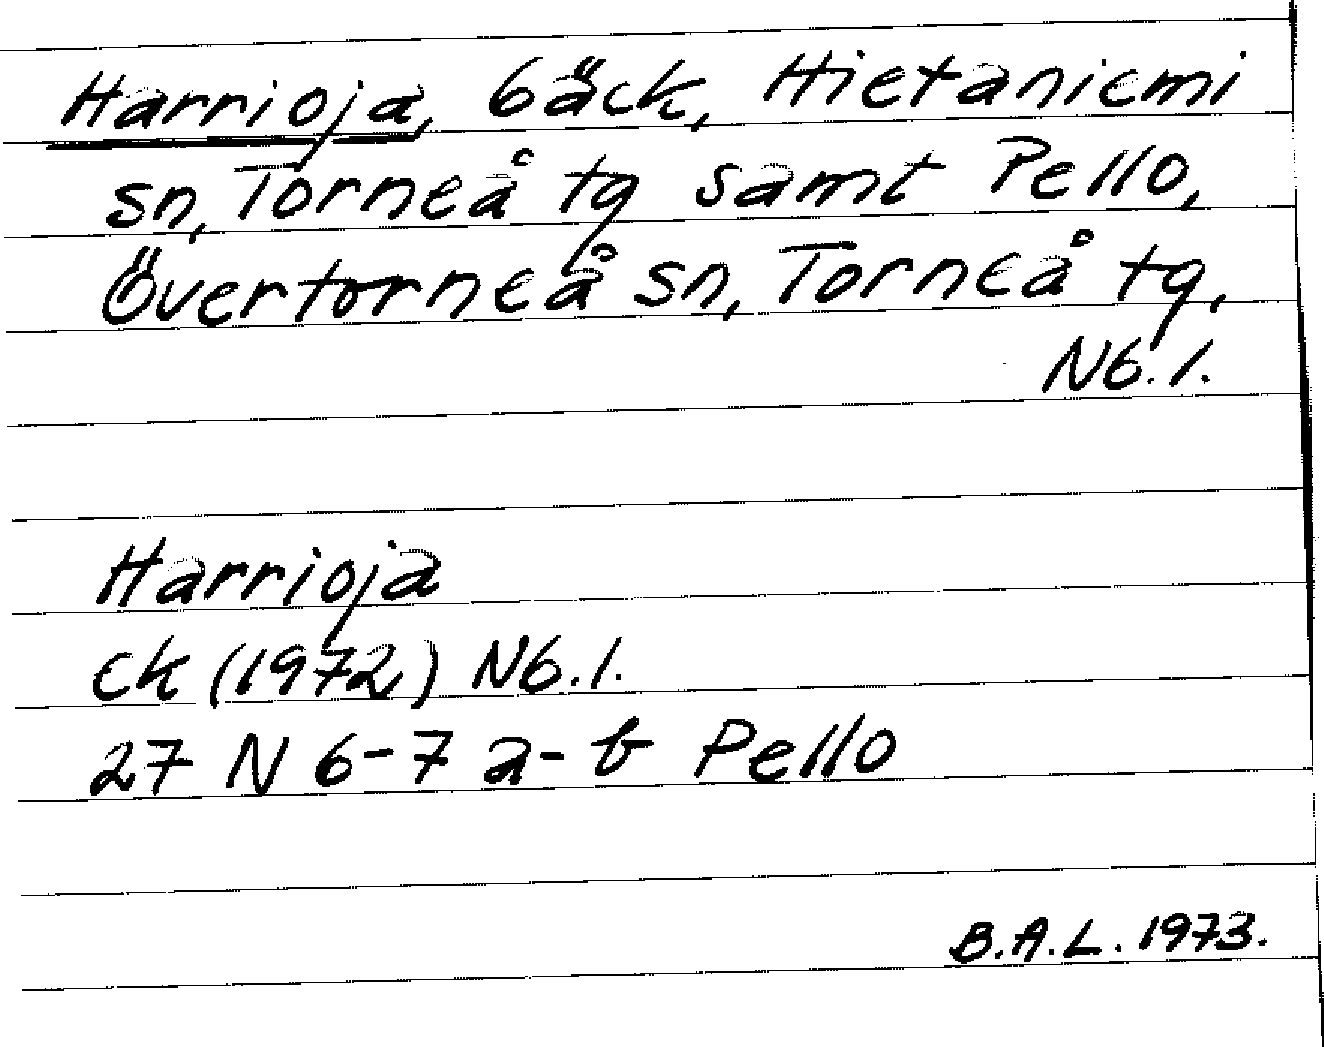 Harrioja, bäck, Hietaniemi
sn, Torneå tg samt Pello,
Övertorneå sn, Torneå tg,
Nb.l.
Harrioja
Ek (1972) Nb.l.
27 N 6-7 a-b Pello
B.A.L. 1973.